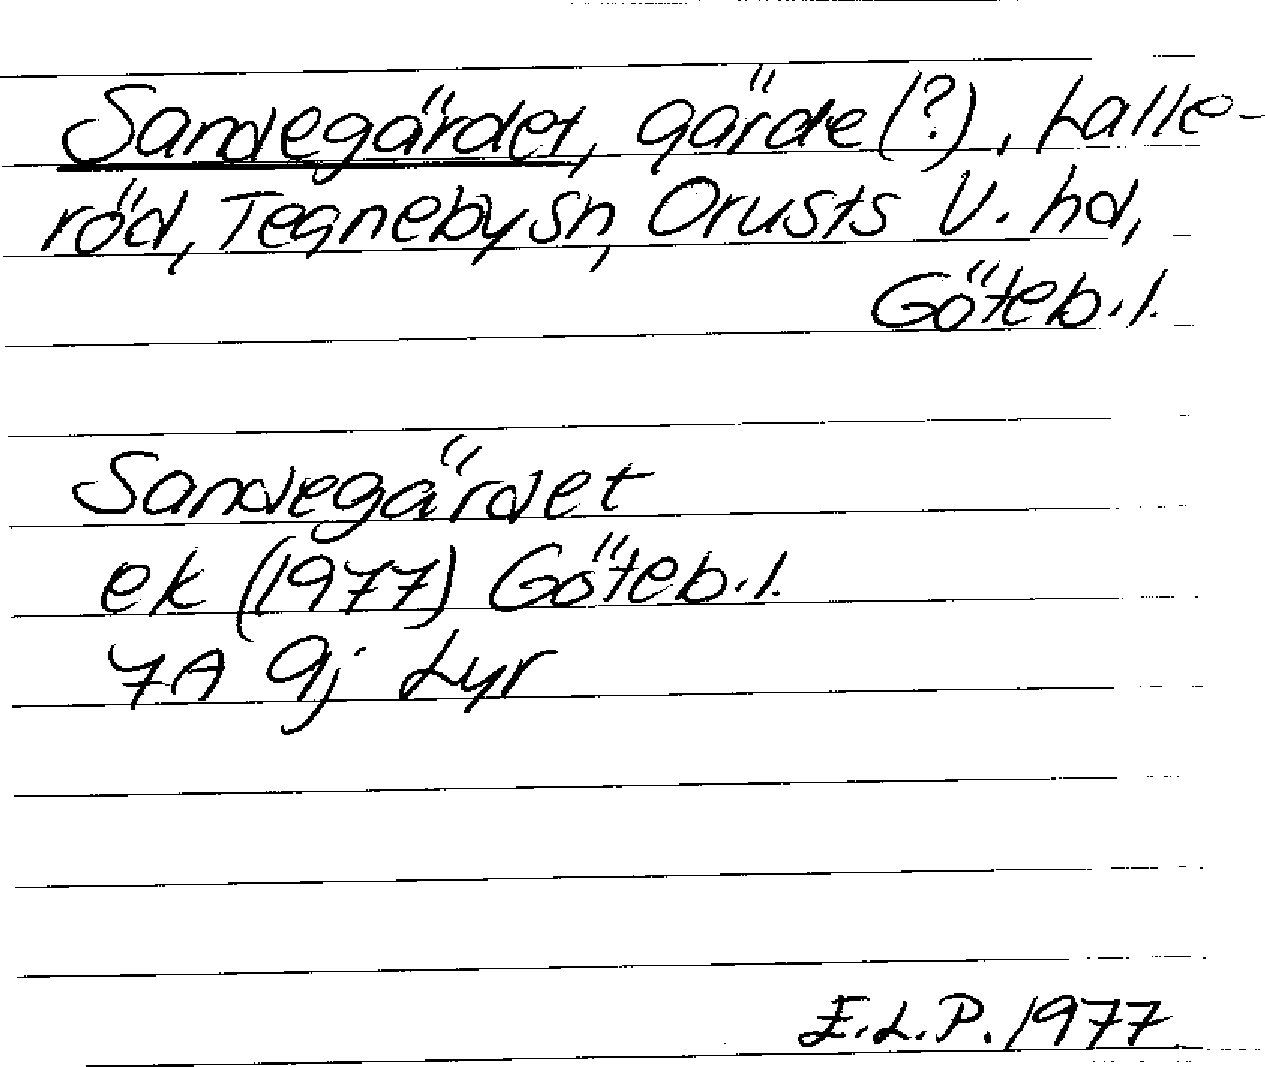 Sandegärdet, gärde (?), Lalle-
röd, Tegneby sn, Orusts V. hd,
Göteb. l.
Sandegärdet
ek (1977) Göteb. l.
7A 9j Lyr
E.L.P. 1977